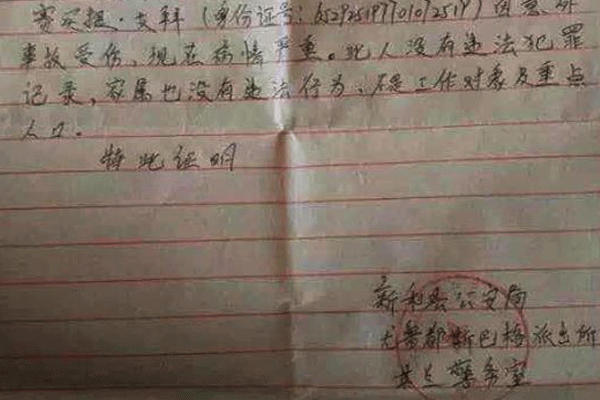 赛买提·艾拜（身份证号：652925197701072519）因意外
事故受伤，现在病情严重。此人没有违法犯罪
记录，家属也没有违法行为；不是工作对象及重点
人口。
特此证明
新和县公安局
尤鲁都斯巴格派出所
警务室